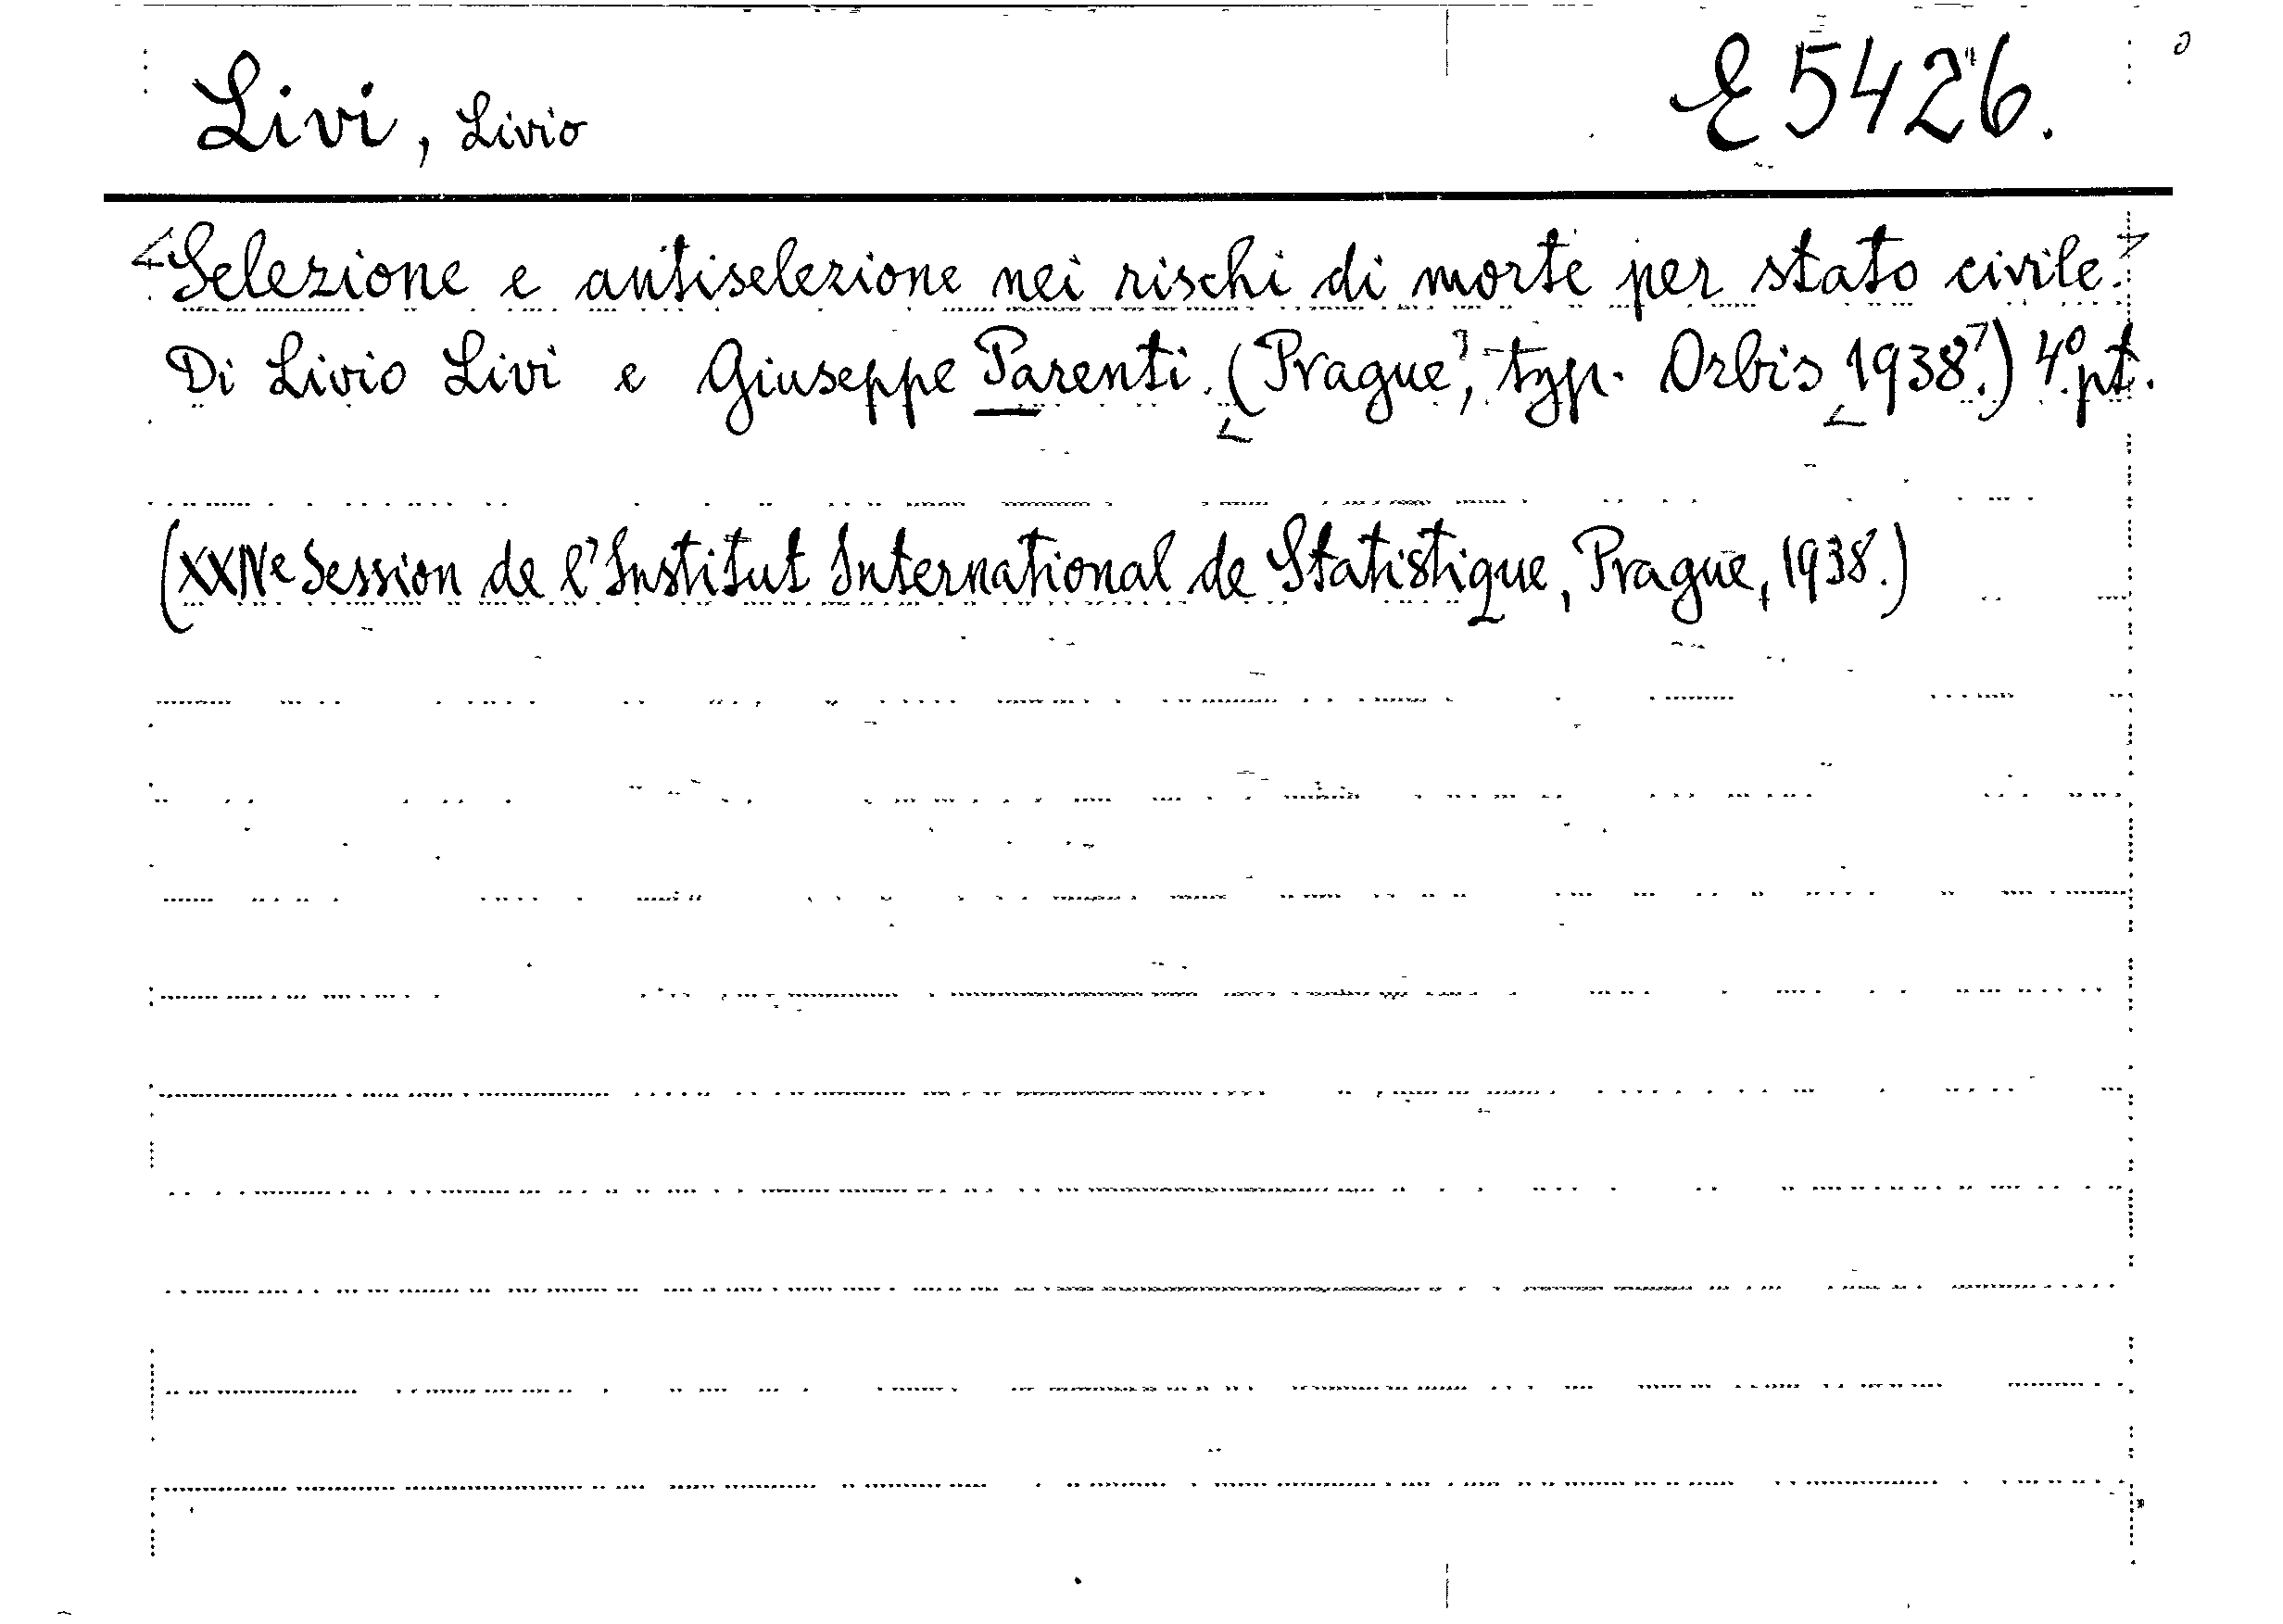 Livi, Livio
E 5426.
Selezione e antiselezione nei rischi di morte per stato civile.
Di Livio Livi e Giuseppe Parenti. (Prague, typ. Orbis 1938.) 4° pt.
(XXIVe Session de l'Institut International de Statistique, Prague, 1938.)